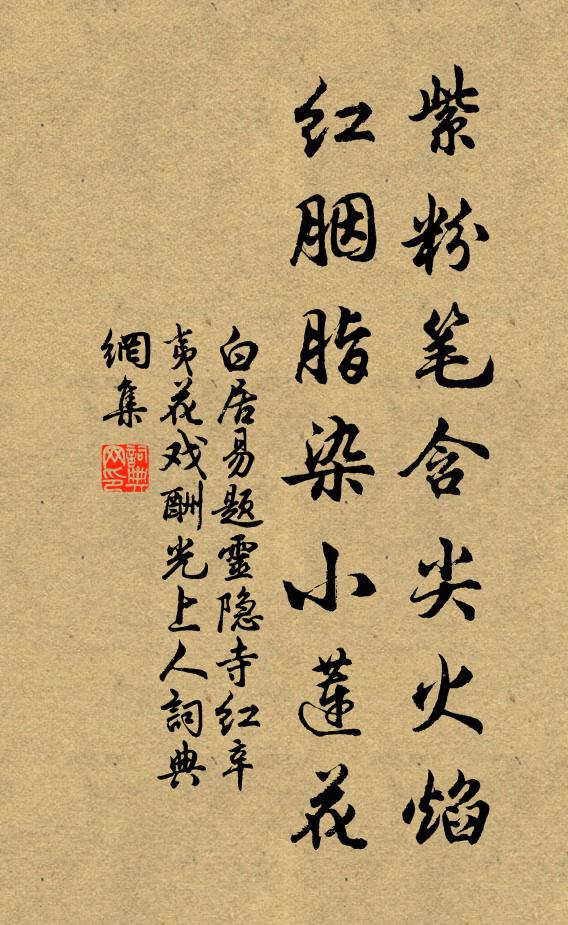 紫粉笔含尖火焰
红胭脂染小莲花
白居易题靈隐寺红辛
夷花戏酬光上人詞典
網集
詞典网印